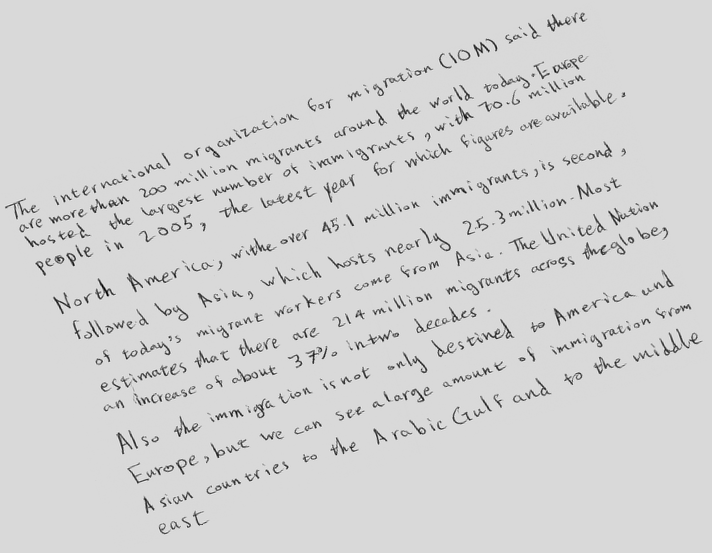 The international organization for migration (IOM) said there
are more than 200 million migrants around the world today. Europe
hosted the largest number of immigrants, with 70.6 million
people in 2005, the latest year for which figures are available.
North America, withe over 45.1 million immigrants, is second,
followed by Asia, which hosts nearly 25.3 million. Most
of today's migrant workers come from Asia. The United Nation
estimates that there are 214 million migrants across the globe,
an increase of about 37% in two decades.
Also the immigration is not only destined to America und
Europe, but we can see a large amount of immigration from
Asian countries to the Arabic Gulf and to the middle
east